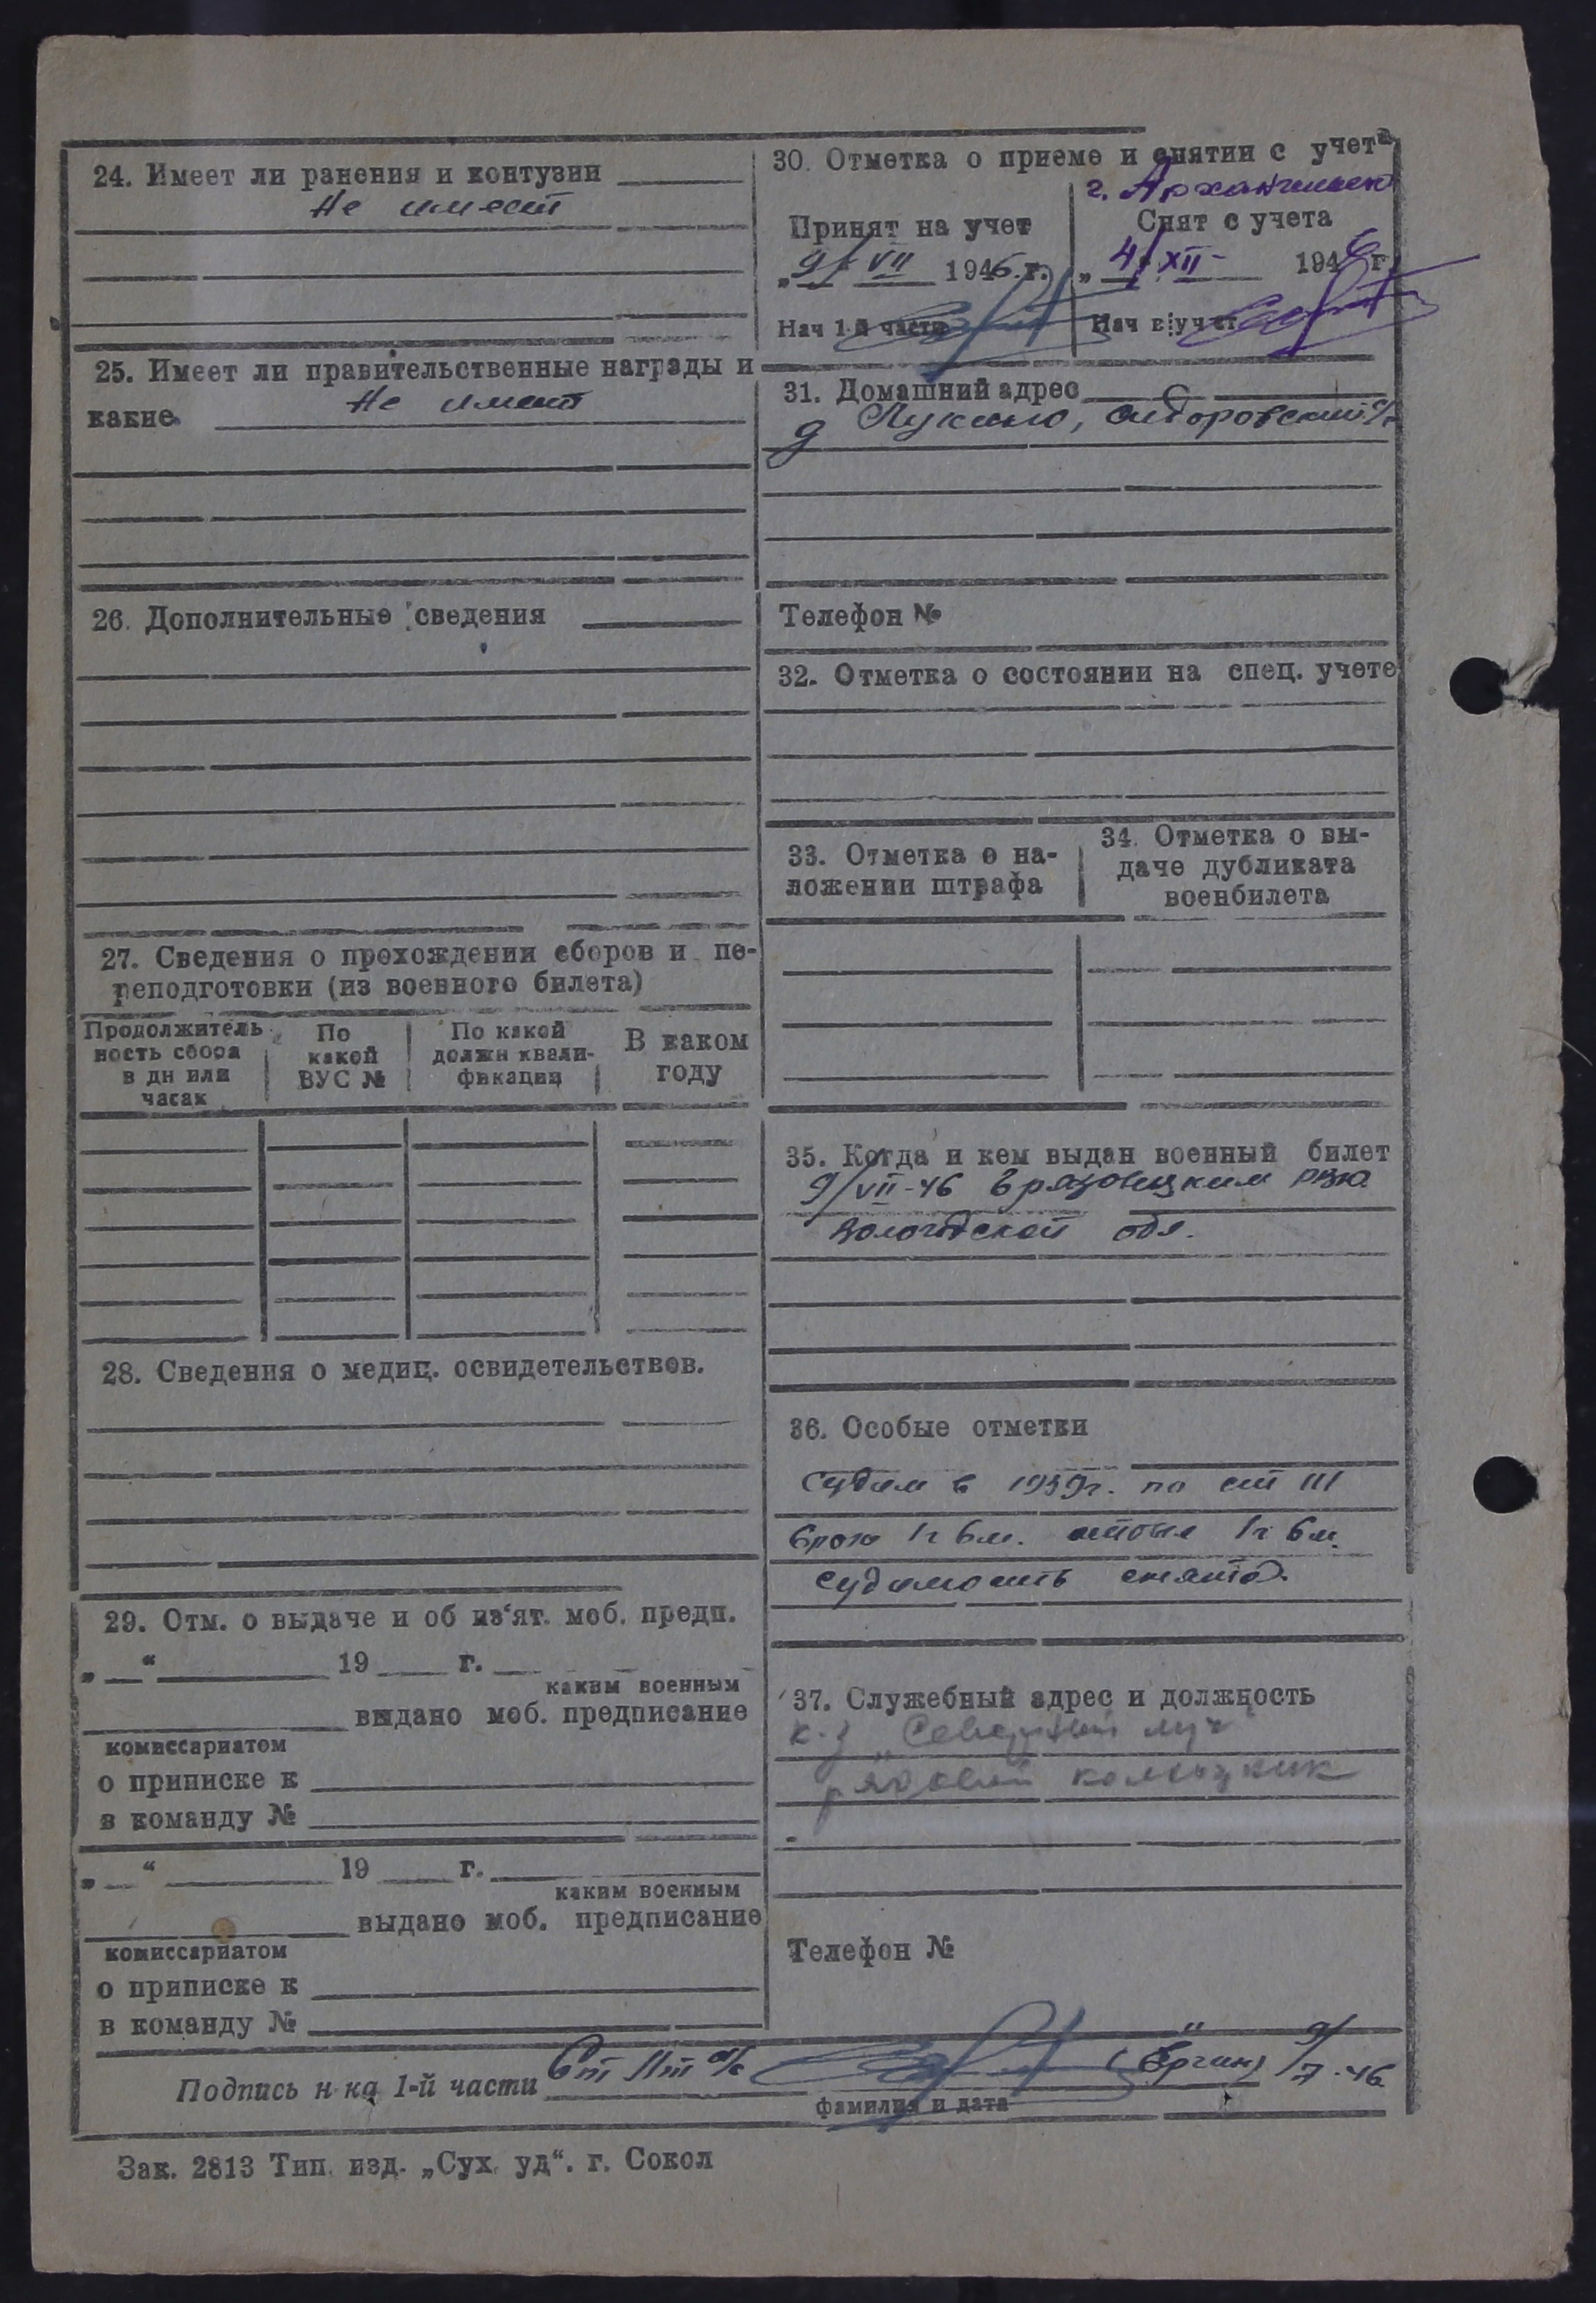 24. Имеет ли ранения и контузии
Не имеет
25. Имеет ли правительственные награды и
какие Не имеет
26. Дополнительные сведения
27. Сведения о прохождении сборов и пе-
реподготовки (из военного билета)
Продолжитель
ность сбора
в дн или
часах
По
какой
ВУС №
По какой
должн квали-
фикации
В каком
году
28. Сведения о медиц. освидетельствов.
29. Отм. о выдаче и об из‘ят. моб. предп.
„ “ 19 г.
каким военным
выдано моб. предписание
комиссариатом
о приписке к
в команду №
„ “ 19 г.
каким военным
выдано моб. предписание
комиссариатом
о приписке к
в команду №
30. Отметка о приеме и снятии с учета
г. Архангельск
Принят на учет
„9/ VII 1946.г.
Нач 1-й части
Снят с учета
„4/ XII- 1946г.
Нач в/учет
31. Домашний адрес
д Лукино, Сидоровский с/с
Телефон №
32. Отметка о состоянии на спец. учете
33. Отметка о на-
ложении штрафа
34. Отметка о вы-
даче дубликата
военбилета
35. Когда и кем выдан военный билет
9/VII-46 Грязовецким РВК
Вологодской обл.
36. Особые отметки
Судим в 1939г. по ст III
срок 1г 6м. отбыл 1г 6м.
судимость снята.
37. Служебный адрес и должность
к-з „Северный луч"
рядовой колхозник
Телефон №
Подпись н-ка 1-й части Ст Лт а/с (Ергин) 9/7-46
фамилия и дата
Зак. 2813 Тип. изд. „Сух. уд“. г. Сокол